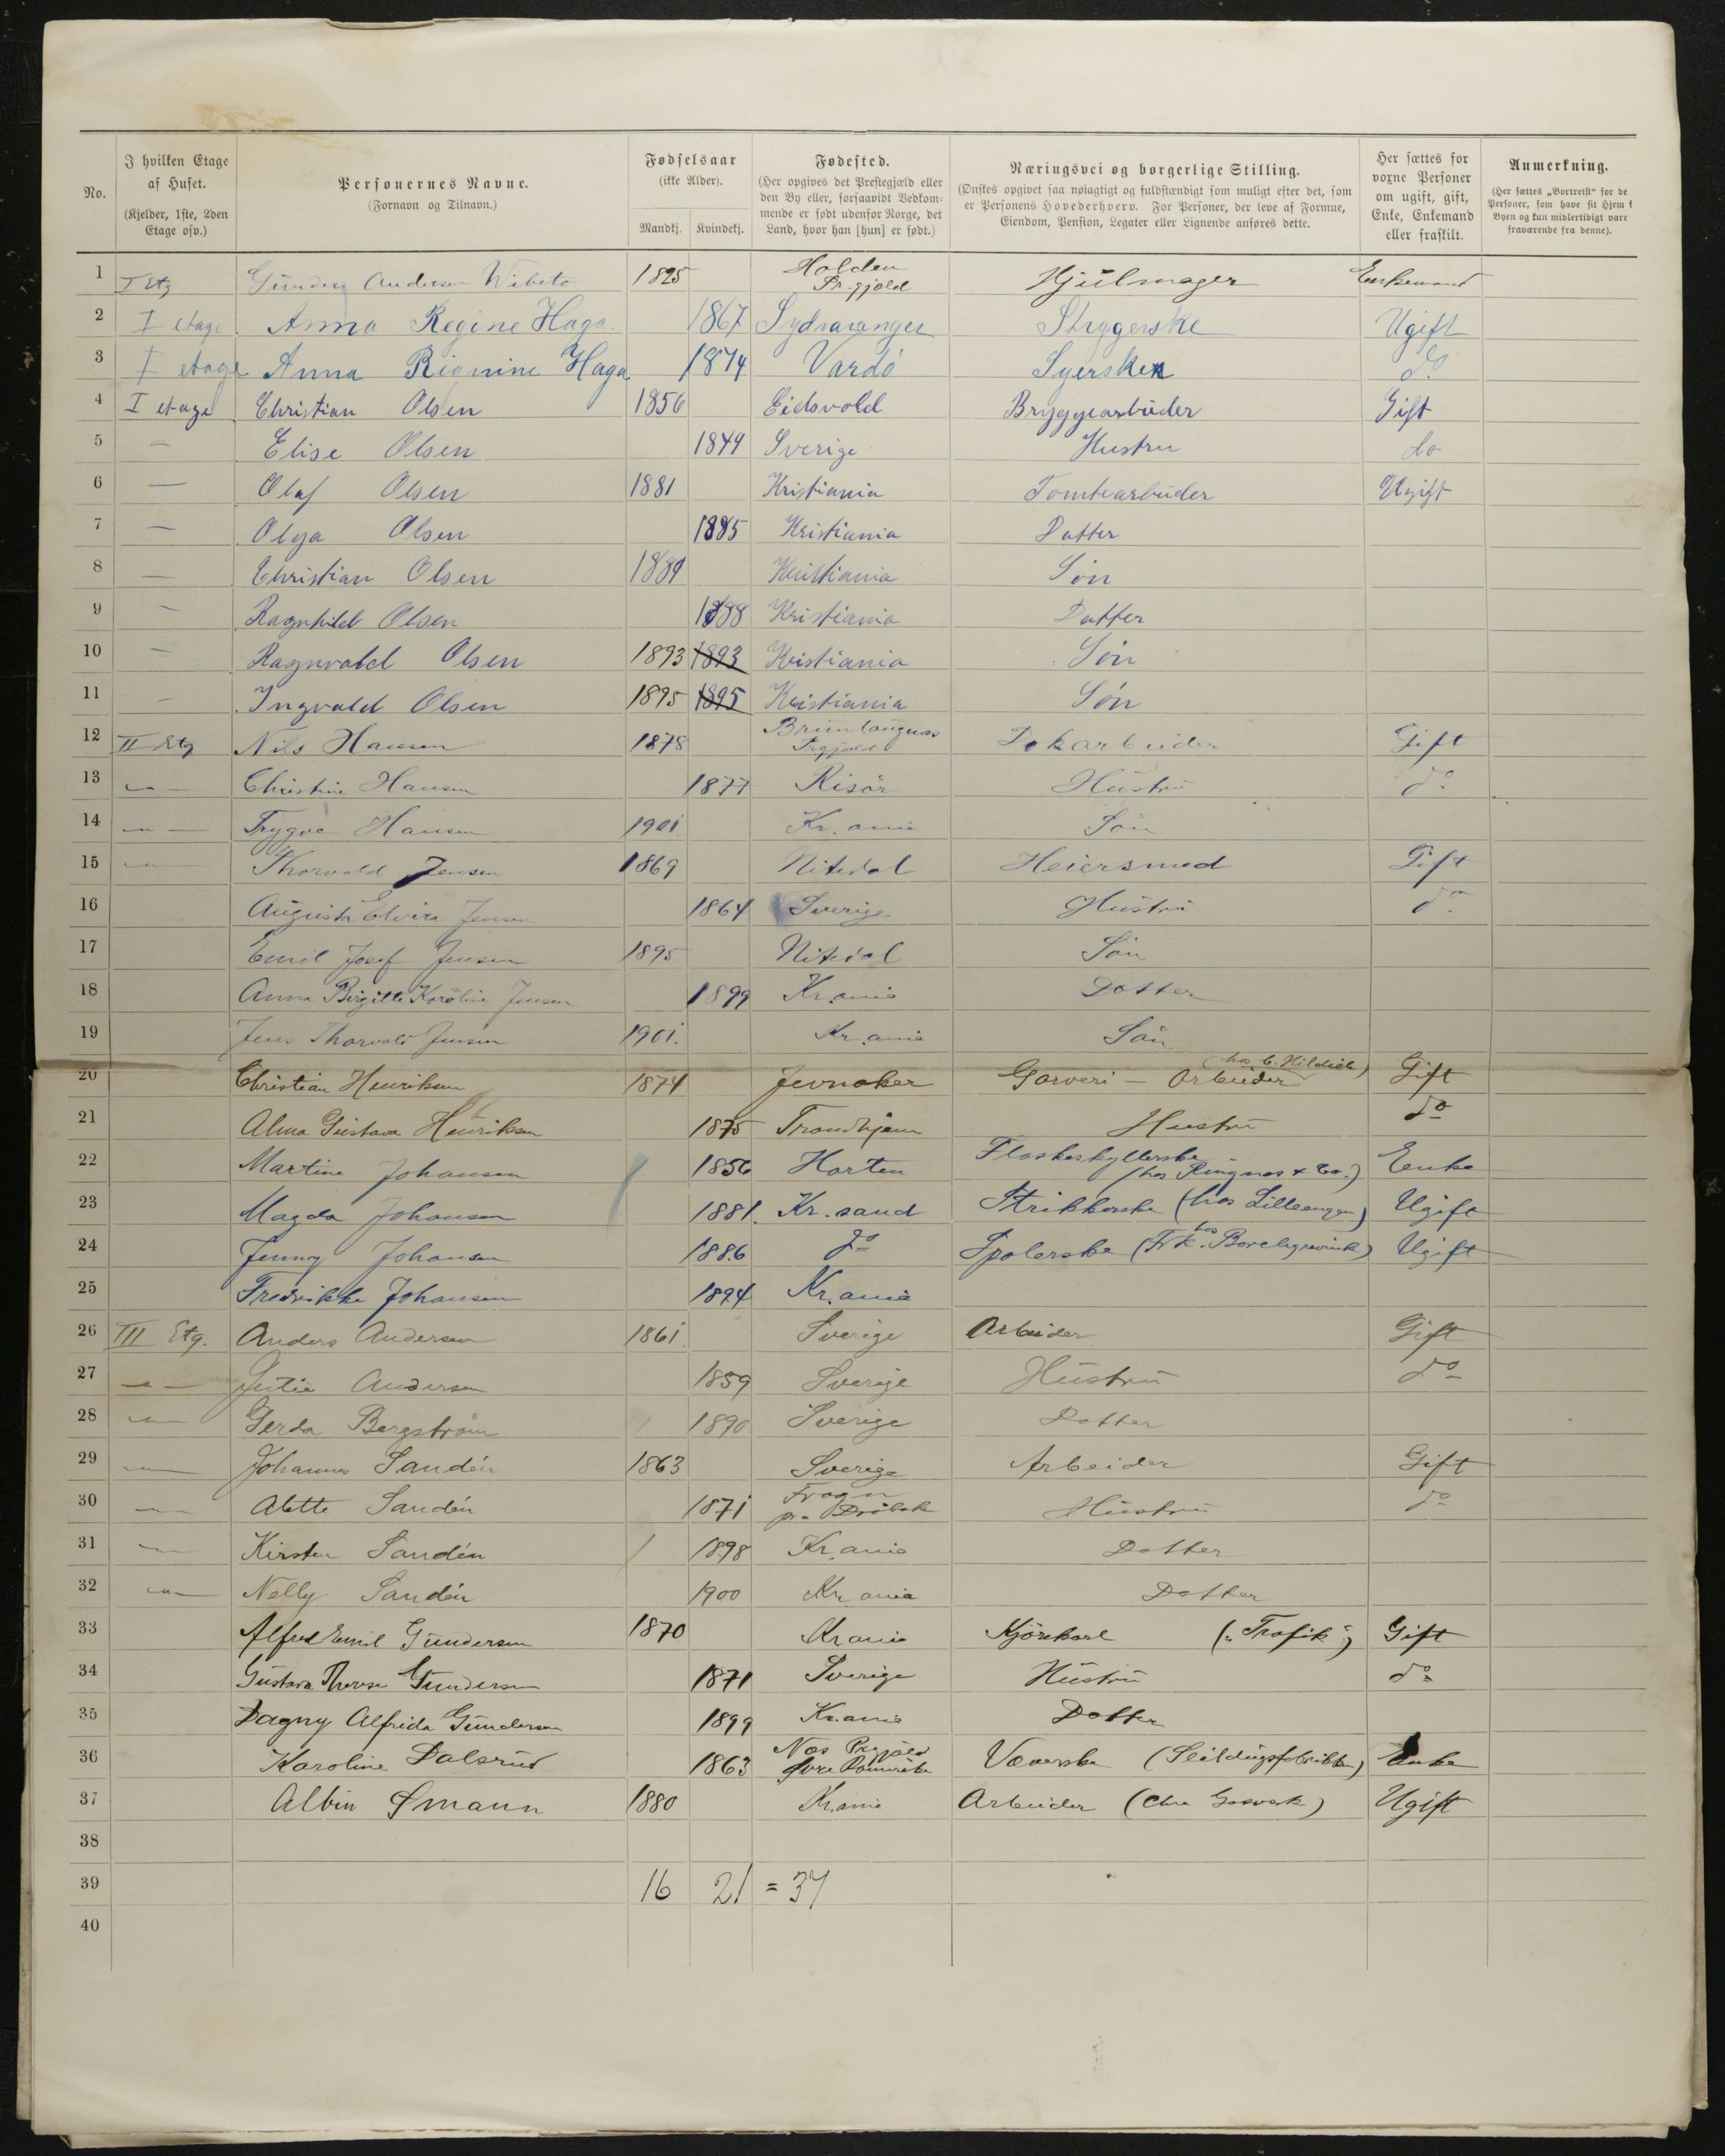 No. I hvilken Etage af Huset. (Kjelder, 1ste, 2den Etage osv.) Personernes Navne. (Fornavn og Tilnavn.) Fødselsaar (ikke Alder). Mandkj. Kvindekj. Fødested. (Her opgives det Prestegjæld eller den By eller, forsaavidt Vedkommende er født udenfor Norge, det Land, hvor han [hun] er født.) Næringsvei og borgerlige Stilling. (Ønskes opgivet saa nøiagtigt og fuldstændigt som muligt efter det, som er Personens Hovederhverv. For Personer, der leve af Formue, Eiendom, Pension, Legater eller Lignende anføres dette.) Her sættes for voxne Personer om ugift, gift, Enke, Enkemand eller fraskilt. Anmerkning. (Her sættes „Bortreist“ for de Personer, som have sit Hjem i Byen og kun midlertidigt vare fraværende fra denne).
1 I Etg Gunder Andersen Wibeto 1825 Holden Pr.gjæld Hjülmager Enkemand
2 I etage Anna Regine Haga 1867 Sydvaranger Strygerske Ugift
3 I etage Anna Rignine Haga 1874 Vardö Syersken do
4 I etage Christian Olsen 1856 Eidsvold Bryggearbeider Gift
5 — Elise Olsen 1849 Sverige Hustru do
6 — Olaf Olsen 1881 Kristiania Tomtearbeider Ugift
7 — Olga Olsen 1885 Kristiania Datter
8 — Christian Olsen 1889 Kristiania Sön
9 — Ragnhild Olsen 1888 Kristiania Datter
10 — Ragnvald Olsen 1893 1893 Kristiania Sön
11 — Ingvald Olsen 1895 1895 Kristiania Sön
12 II Etg Nils Hansen 1878 Brunlaugnæs Prgjæld Dokarbeider Gift
13 —"— Christine Hansen 1877 Risör Hüstrü do
14 —"— Trygve Hansen 1901 Kr.ania Sön
15 —"— Thorvald Jensen 1869 Nitedal Heiersmed Gift
16 Augusta Elvira Jensen 1864 Sverige Hüstrü do
17 Emil Josef Jensen 1895 Nitedal Sön
18 Anna Birgitte Karoline Jensen 1899 Kr.ania Datter
19 Jens Thorvald Jensen 1901. Kr.ania Sön
20 Christian Henriksen 1874 Jevnaker Garveri - Arbeider (hos C. Hildisch) Gift
21 Alma Gustava Henriksen 1875 Trondhjem Hustru do
22 Martine Johansen 1856 Horten Flaskeskyllerske (hos Ringnes & Co.) Enke
23 Magda Johansen 1881. Kr.sand Strikkerske (hos Lilleengen) Ugift
24 Jenny Johansen 1886 do Spolerske (hos Frk. Borchgrevink) Ugift
25 Fredrikke Johansen 1894 Kr.ania
26 III Etg. Anders Andersen 1861 Sverige Arbeider Gift
27 —"— Julia Andersen 1859 Sverige Hüstrü do
28 —"— Gerda Bergström 1890 Sverige Datter
29 —"— Johannes Sandén 1863 Sverige Arbeider Gift
30 —"— Alette Sandén 1871 Frogn pr. Dröbak Hüstrü do
31 —"— Kirsten Sandén 1898 Kr.ania Datter
32 —"— Nelly Sandén 1900 Kr.ania Datter
33 Alfred Emil Gundersen 1870 Kr.ania Kjörekarl („Trafik“) Gift
34 Gustava Therese Gundersen 1871 Sverige Hüstrü do
35 Dagny Alfrida Gundersen 1899 Kr.ania Datter
36 Karoline Dalsrud 1863 Næs Prgjæld Övre Romerike Væverske (Seildugsfabrikken) Enke
37 Albin Smann 1880 Kr.ania Arbeider (Chra Gasverk) Ugift
38
39 16 21 = 37
40